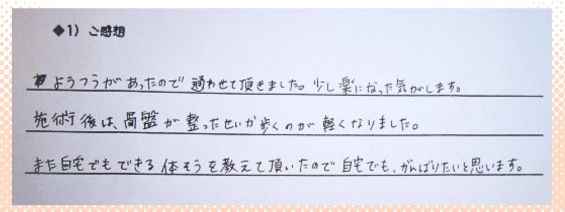 ◆1) ご感想
ようつうがあったので通わせて頂きました。少し楽になった気がします。
施術後は、骨盤が整ったせいか歩くのが軽くなりました。
また自宅でもできる体そうを教えて頂いたので自宅でも、がんばりたいと思います。